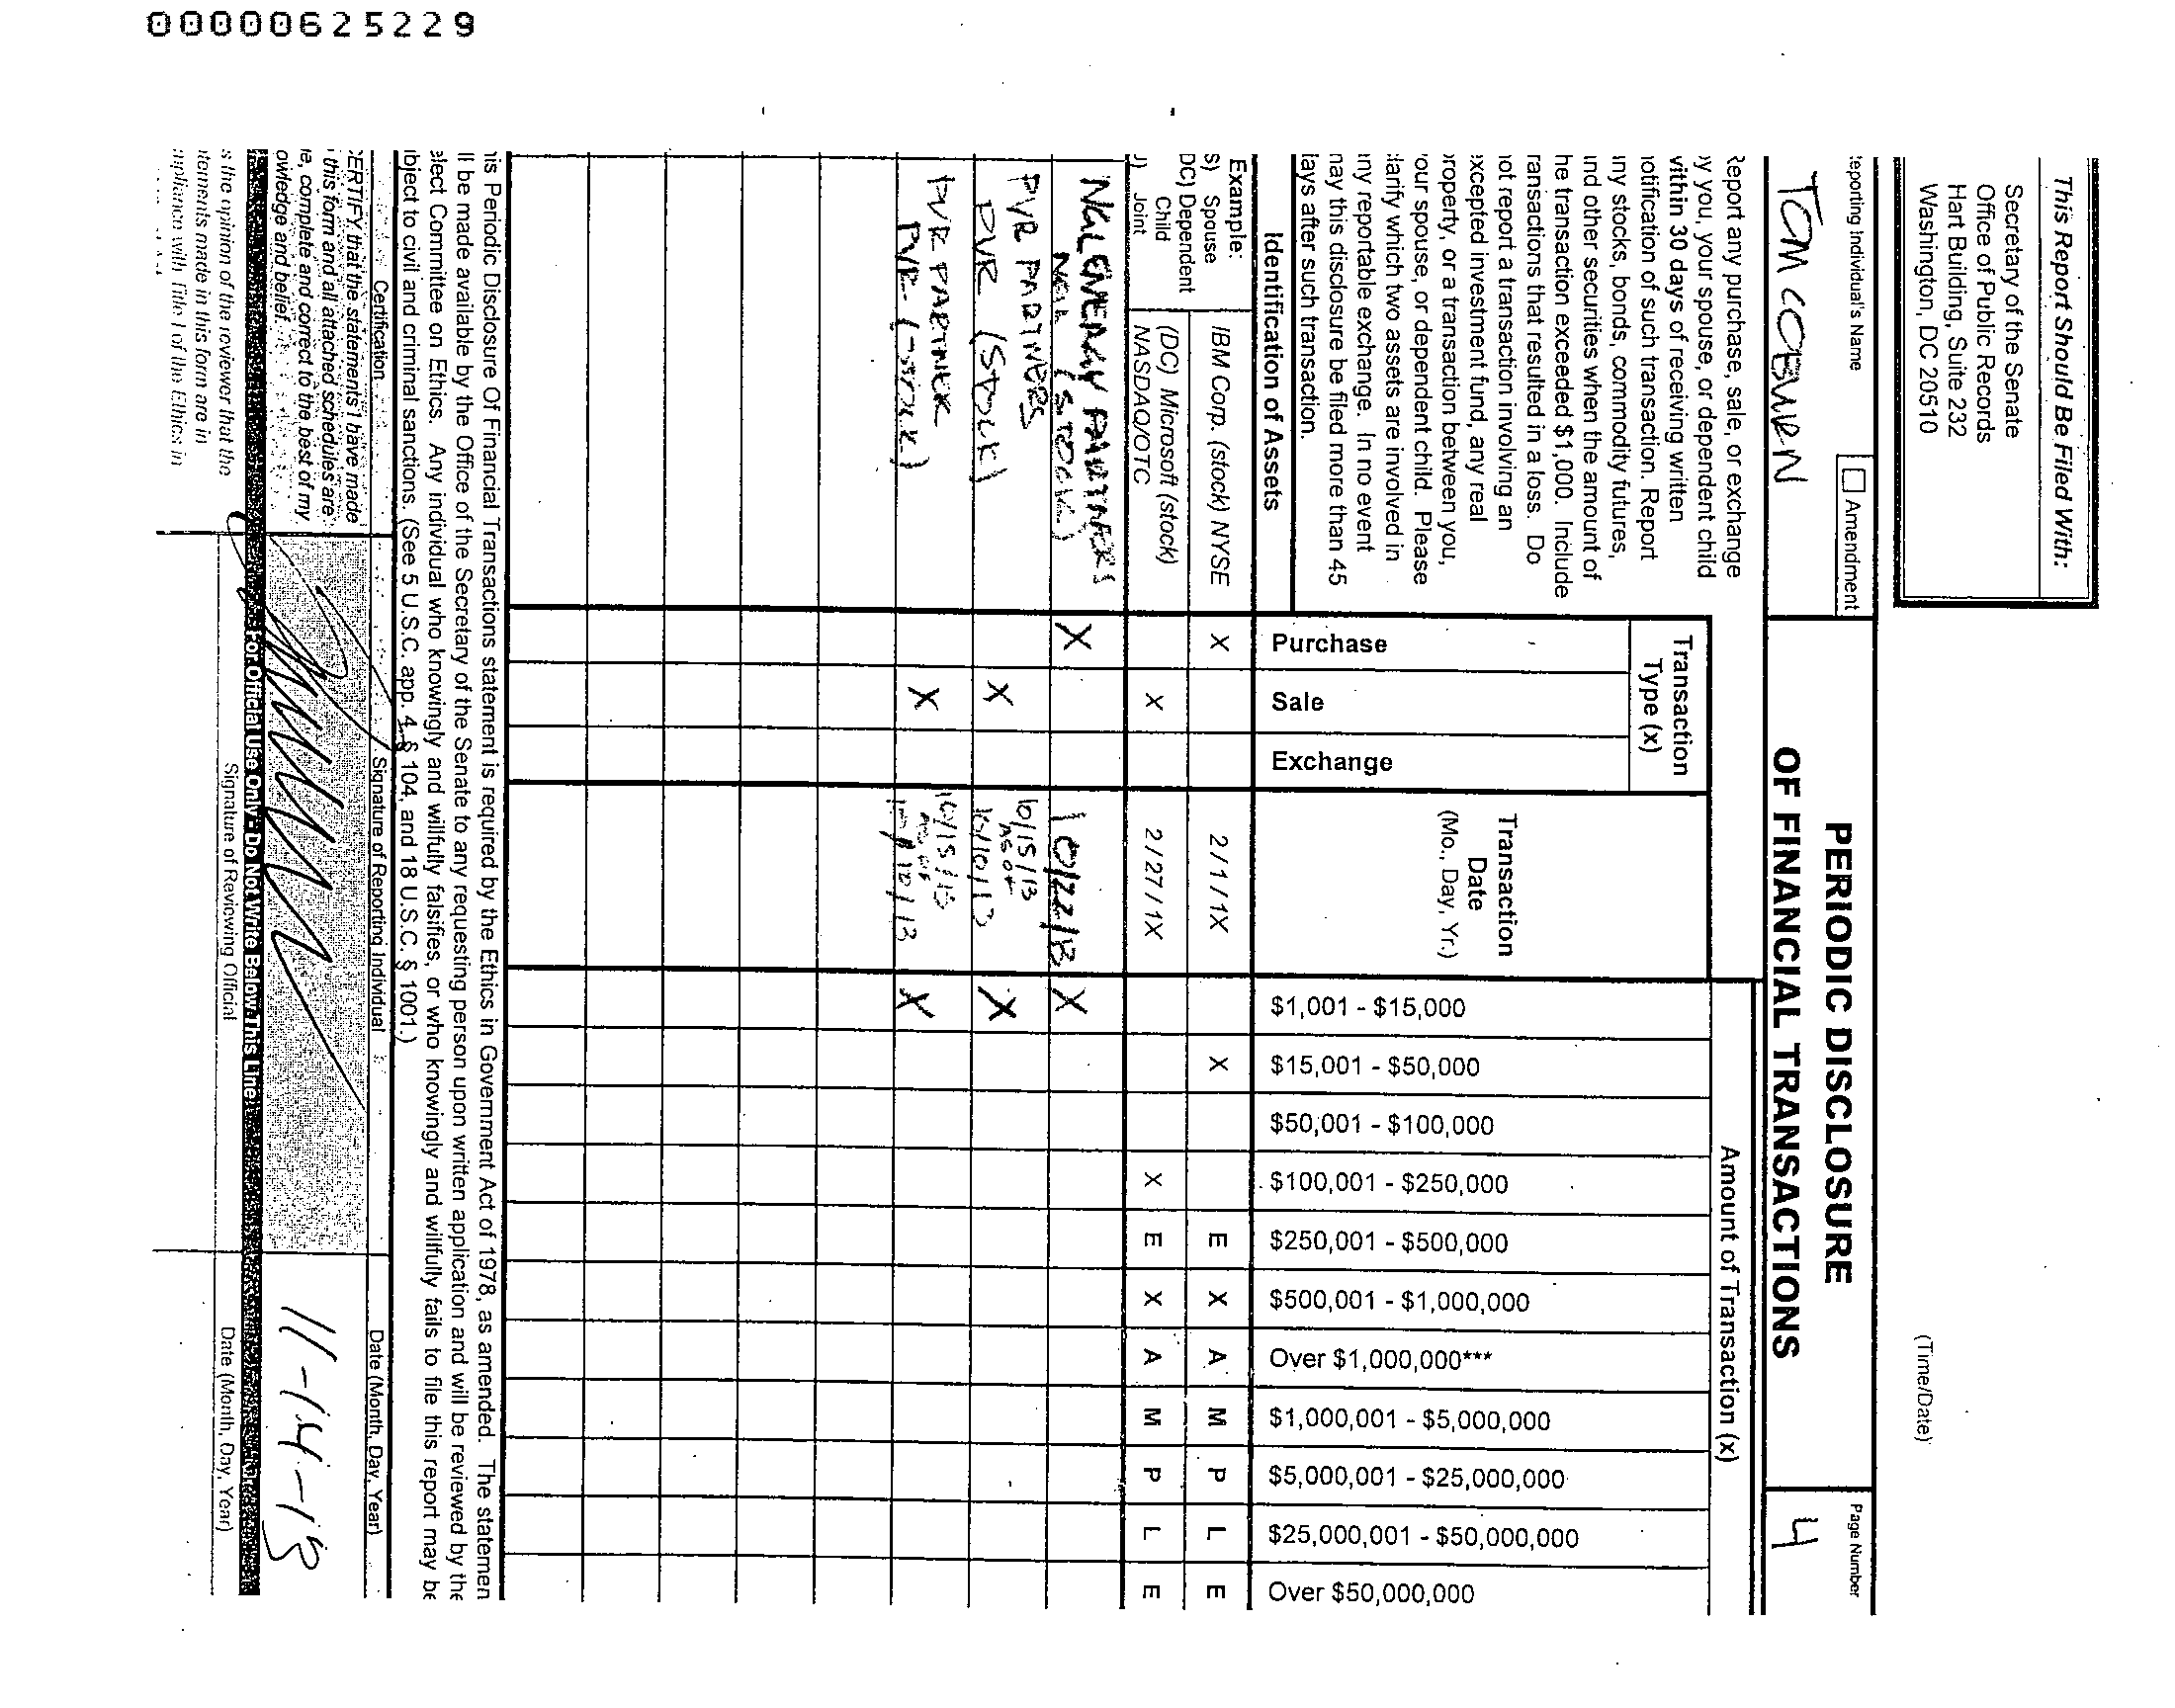 00000625229
This Report Should Be Filed With:
Secretary of the Senate
Office of Public Records
Hart Building, Suite 232
Washington, DC 20510
(Time/Date)
eporting Individual's Name
Amendment
TOM COBURN
PERIODIC DISCLOSURE
OF FINANCIAL TRANSACTIONS
Page Number
4
Report any purchase, sale, or exchange
y you, your spouse, or dependent child
vithin 30 days of receiving written
otification of such transaction. Report
ny stocks, bonds, commodity futures,
nd other securities when the amount of
he transaction exceeded $1,000. Include
ransactions that resulted in a loss. Do
ot report a transaction involving an
xcepted investment fund, any real
roperty, or a transaction between you,
our spouse, or dependent child. Please
larify which two assets are involved in
ny reportable exchange. In no event
nay this disclosure be filed more than 45
lays after such transaction.
Transaction
Type (x)
Amount of Transaction (x)
Identification of Assets
Purchase
Sale
Exchange
Transaction
Date
(Mo., Day, Yr.)
$1,001 - $15,000
$15,001 - $50,000
$50,001 - $100,000
$100,001 - $250,000
$250,001 - $500,000
$500,001 - $1,000,000
Over $1,000,000***
$1,000,001 - $5,000,000
$5,000,001 - $25,000,000
$25,000,001 - $50,000,000
Over $50,000,000
Example:
S) Spouse
DC) Dependent
Child
J) Joint
IBM Corp. (stock) NYSE X 2/1/1X X E X A M P L E
(DC) Microsoft (stock)
NASDAQ/OTC X 2/27/1X X E X A M P L E
NGL ENERGY PARTNERS
NGL (STOCK) X 10/22/13 X
PVR PARTNERS
PVR (STOCK) X 10/15/13
AS OF
10/10/13 X
PVR PARTNER
PVR (STOCK) X 10/15/13
AS OF
10/10/13 X
is Periodic Disclosure Of Financial Transactions statement is required by the Ethics in Government Act of 1978, as amended. The statemen
ll be made available by the Office of the Secretary of the Senate to any requesting person upon written application and will be reviewed by the
elect Committee on Ethics. Any individual who knowingly and willfully falsifies, or who knowingly and willfully fails to file this report may be
bject to civil and criminal sanctions. (See 5 U.S.C. app. 4, § 104, and 18 U.S.C. § 1001.)
Certification
Signature of Reporting Individual
Date (Month, Day, Year)
CERTIFY that the statements I have made
this form and all attached schedules are
e, complete and correct to the best of my
owledge and belief.
11-14-13
For Official Use Only - Do Not Write Below This Line
s the opinion of the reviewer that the
tements made in this form are in
mpliance with Title I of the Ethics in
Signature of Reviewing Official
Date (Month, Day, Year)